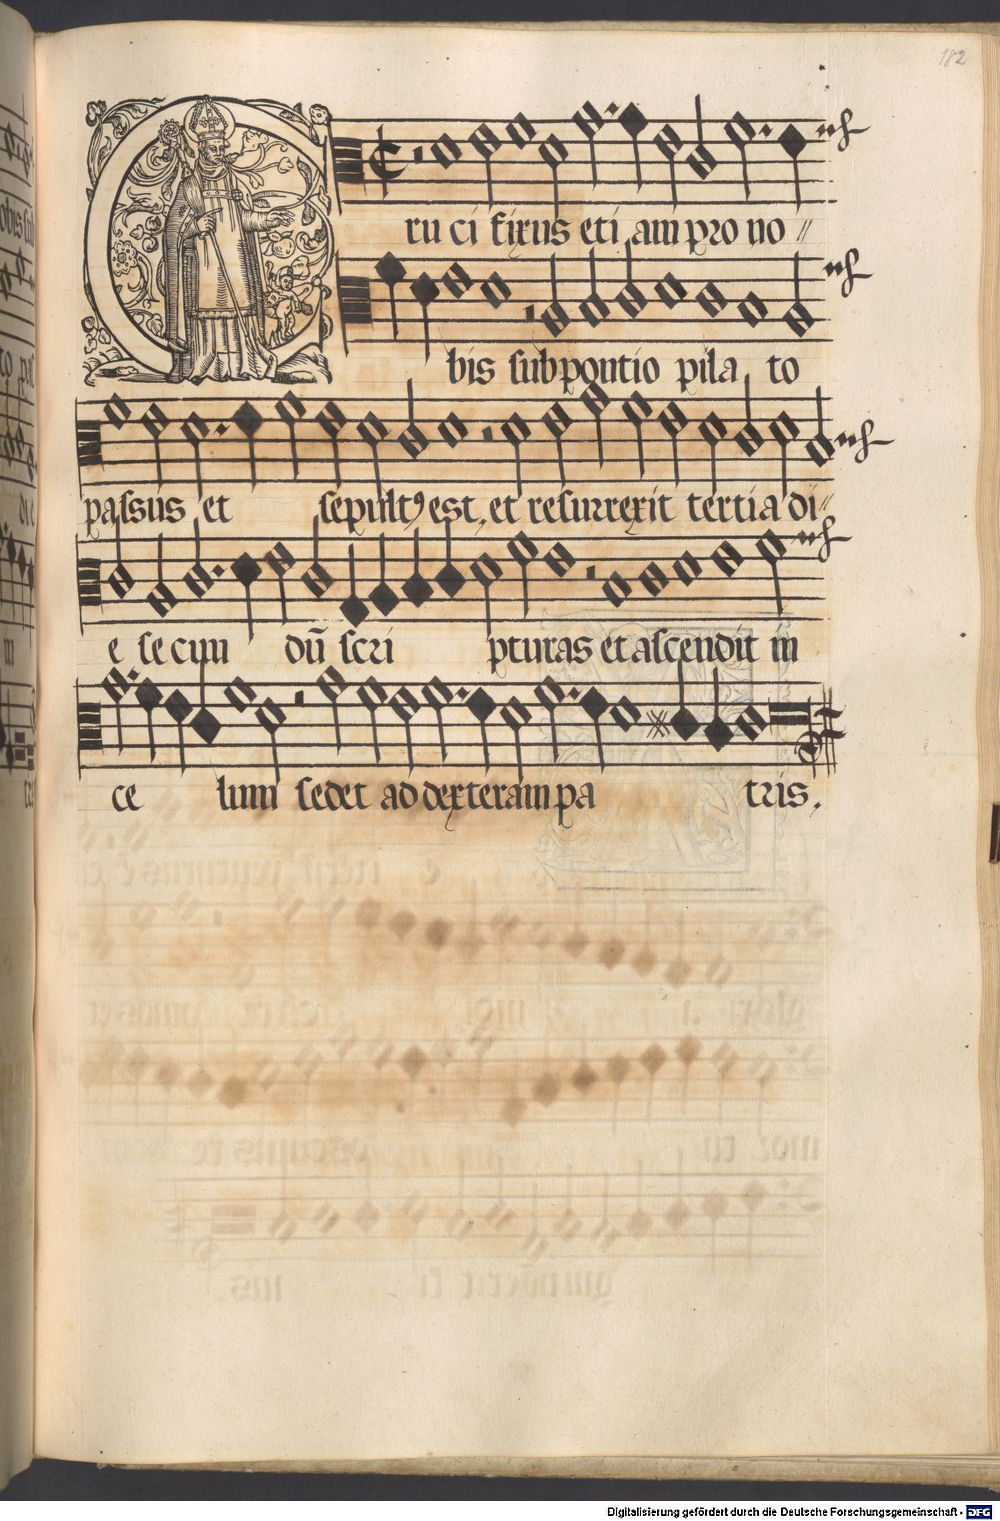 182
C ru ci fixus eti am pro no //
bis sub pontio pila to
passus et sepultꝰ est, et resurrexit tertia di //
e se cun dū scri pturas et ascendit in
ce lum sedet ad dexteram pa tris,
Digitalisierung gefördert durch die Deutsche Forschungsgemeinschaft - DFG